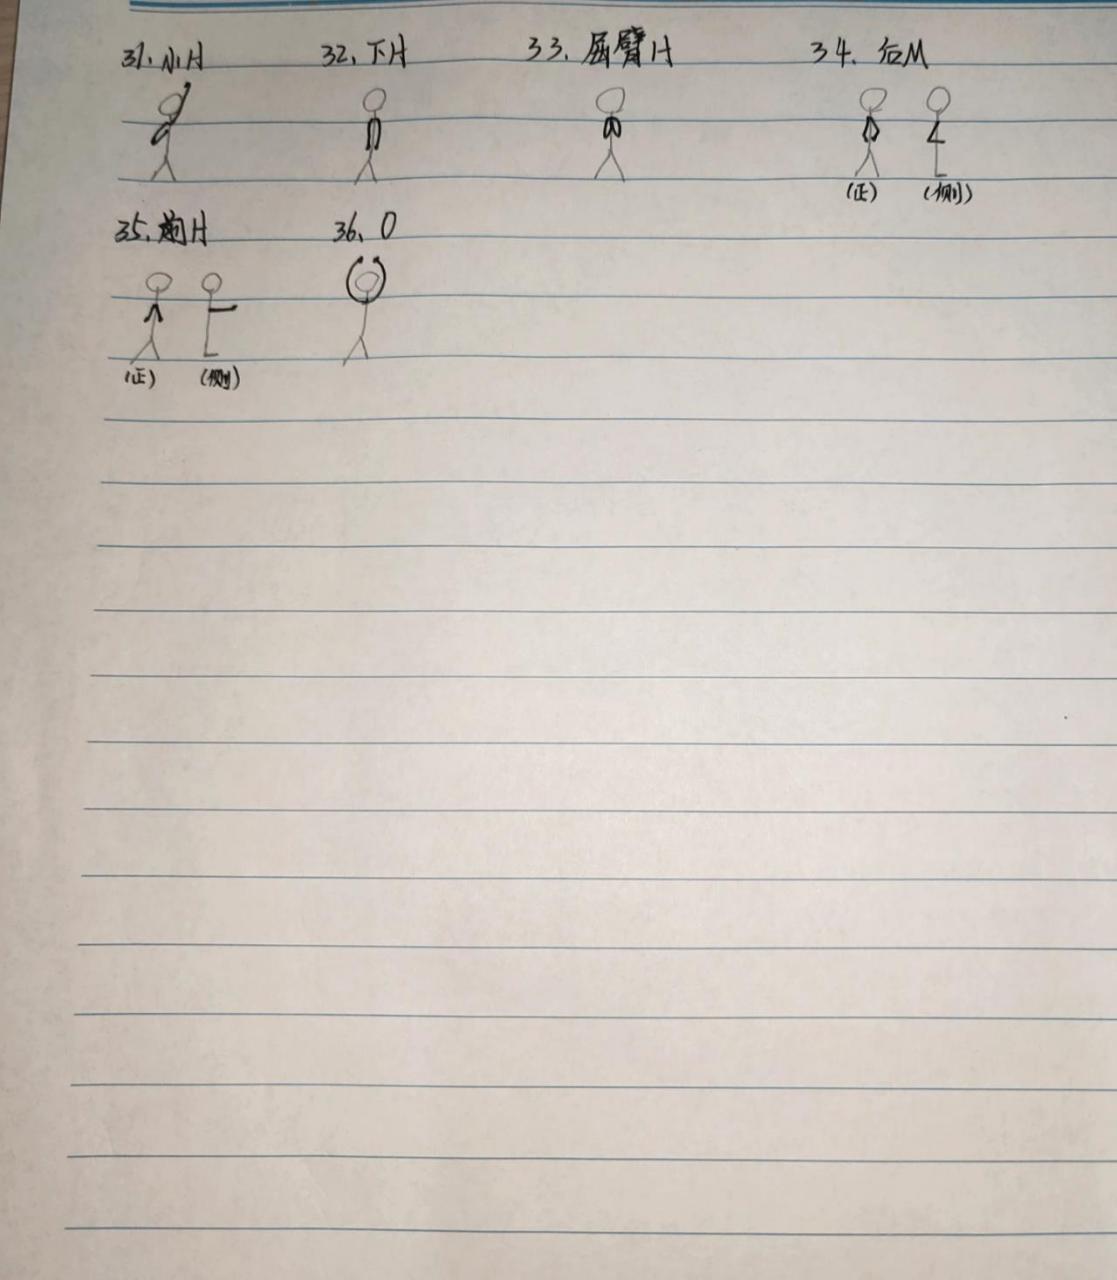 31.小H 32.下H 33.屈臂H 34.后M
(正) (侧)
35.抱H 36.O
(正) (侧)